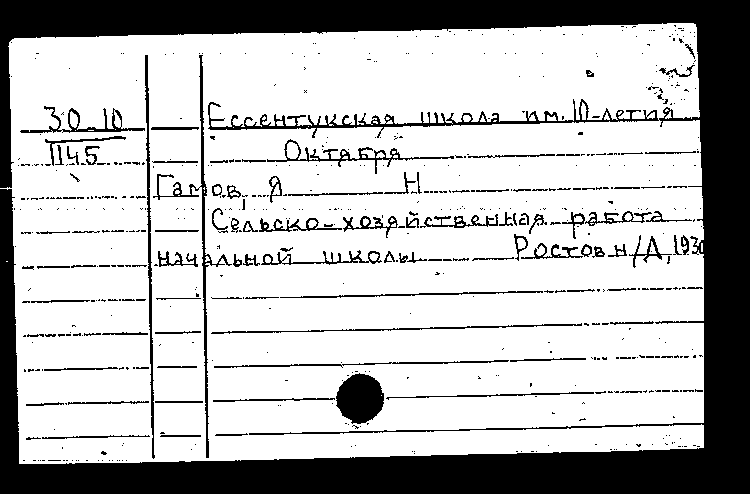 30-10
1145
Ессентукская школа им. 10-летия
Октября
Гамов, Я Н
Сельско-хозяйственная работа
начальной школы Ростов н/Д, 1930